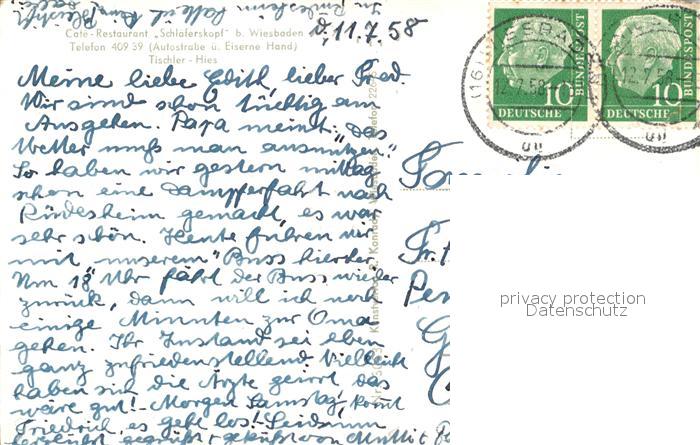 In Rüdesheim
Café-Restaurant „Schläferskopf" b. Wiesbaden
d. 11.7.58
Telefon 409 39 (Autostraße ü. Eiserne Hand)
Tischler - Hies
Meine liebe Edith, lieber Fred.
Wir sind schon tüchtig am
Ausgehen. Papa meint: „das
Wetter muß man ausnützen"
So haben wir gestern mittag
schon eine Dampferfahrt nach
Rüdesheim gemacht, es war
sehr schön. Heute fuhren wir
mit unserem „Buss" hierher
Um 18 Uhr fährt der Buss wieder
zurück, dann will ich noch
einige Minuten zur Oma
gehen. Ihr Zustand sei eben
ganz zufriedenstellend. Vielleicht
haben sich die Ärzte geirrt, das
wäre gut! Morgen Samstag, kommt
Friedrich, es geht los! Seid nun
herzlichst gegrüßt + geküßt von Mutti +
12.7.58
10
DEUTSCHE
BUNDESPOST
12.7.58
10
DEUTSCHE
BUNDESPOST
privacy protection
Datenschutz